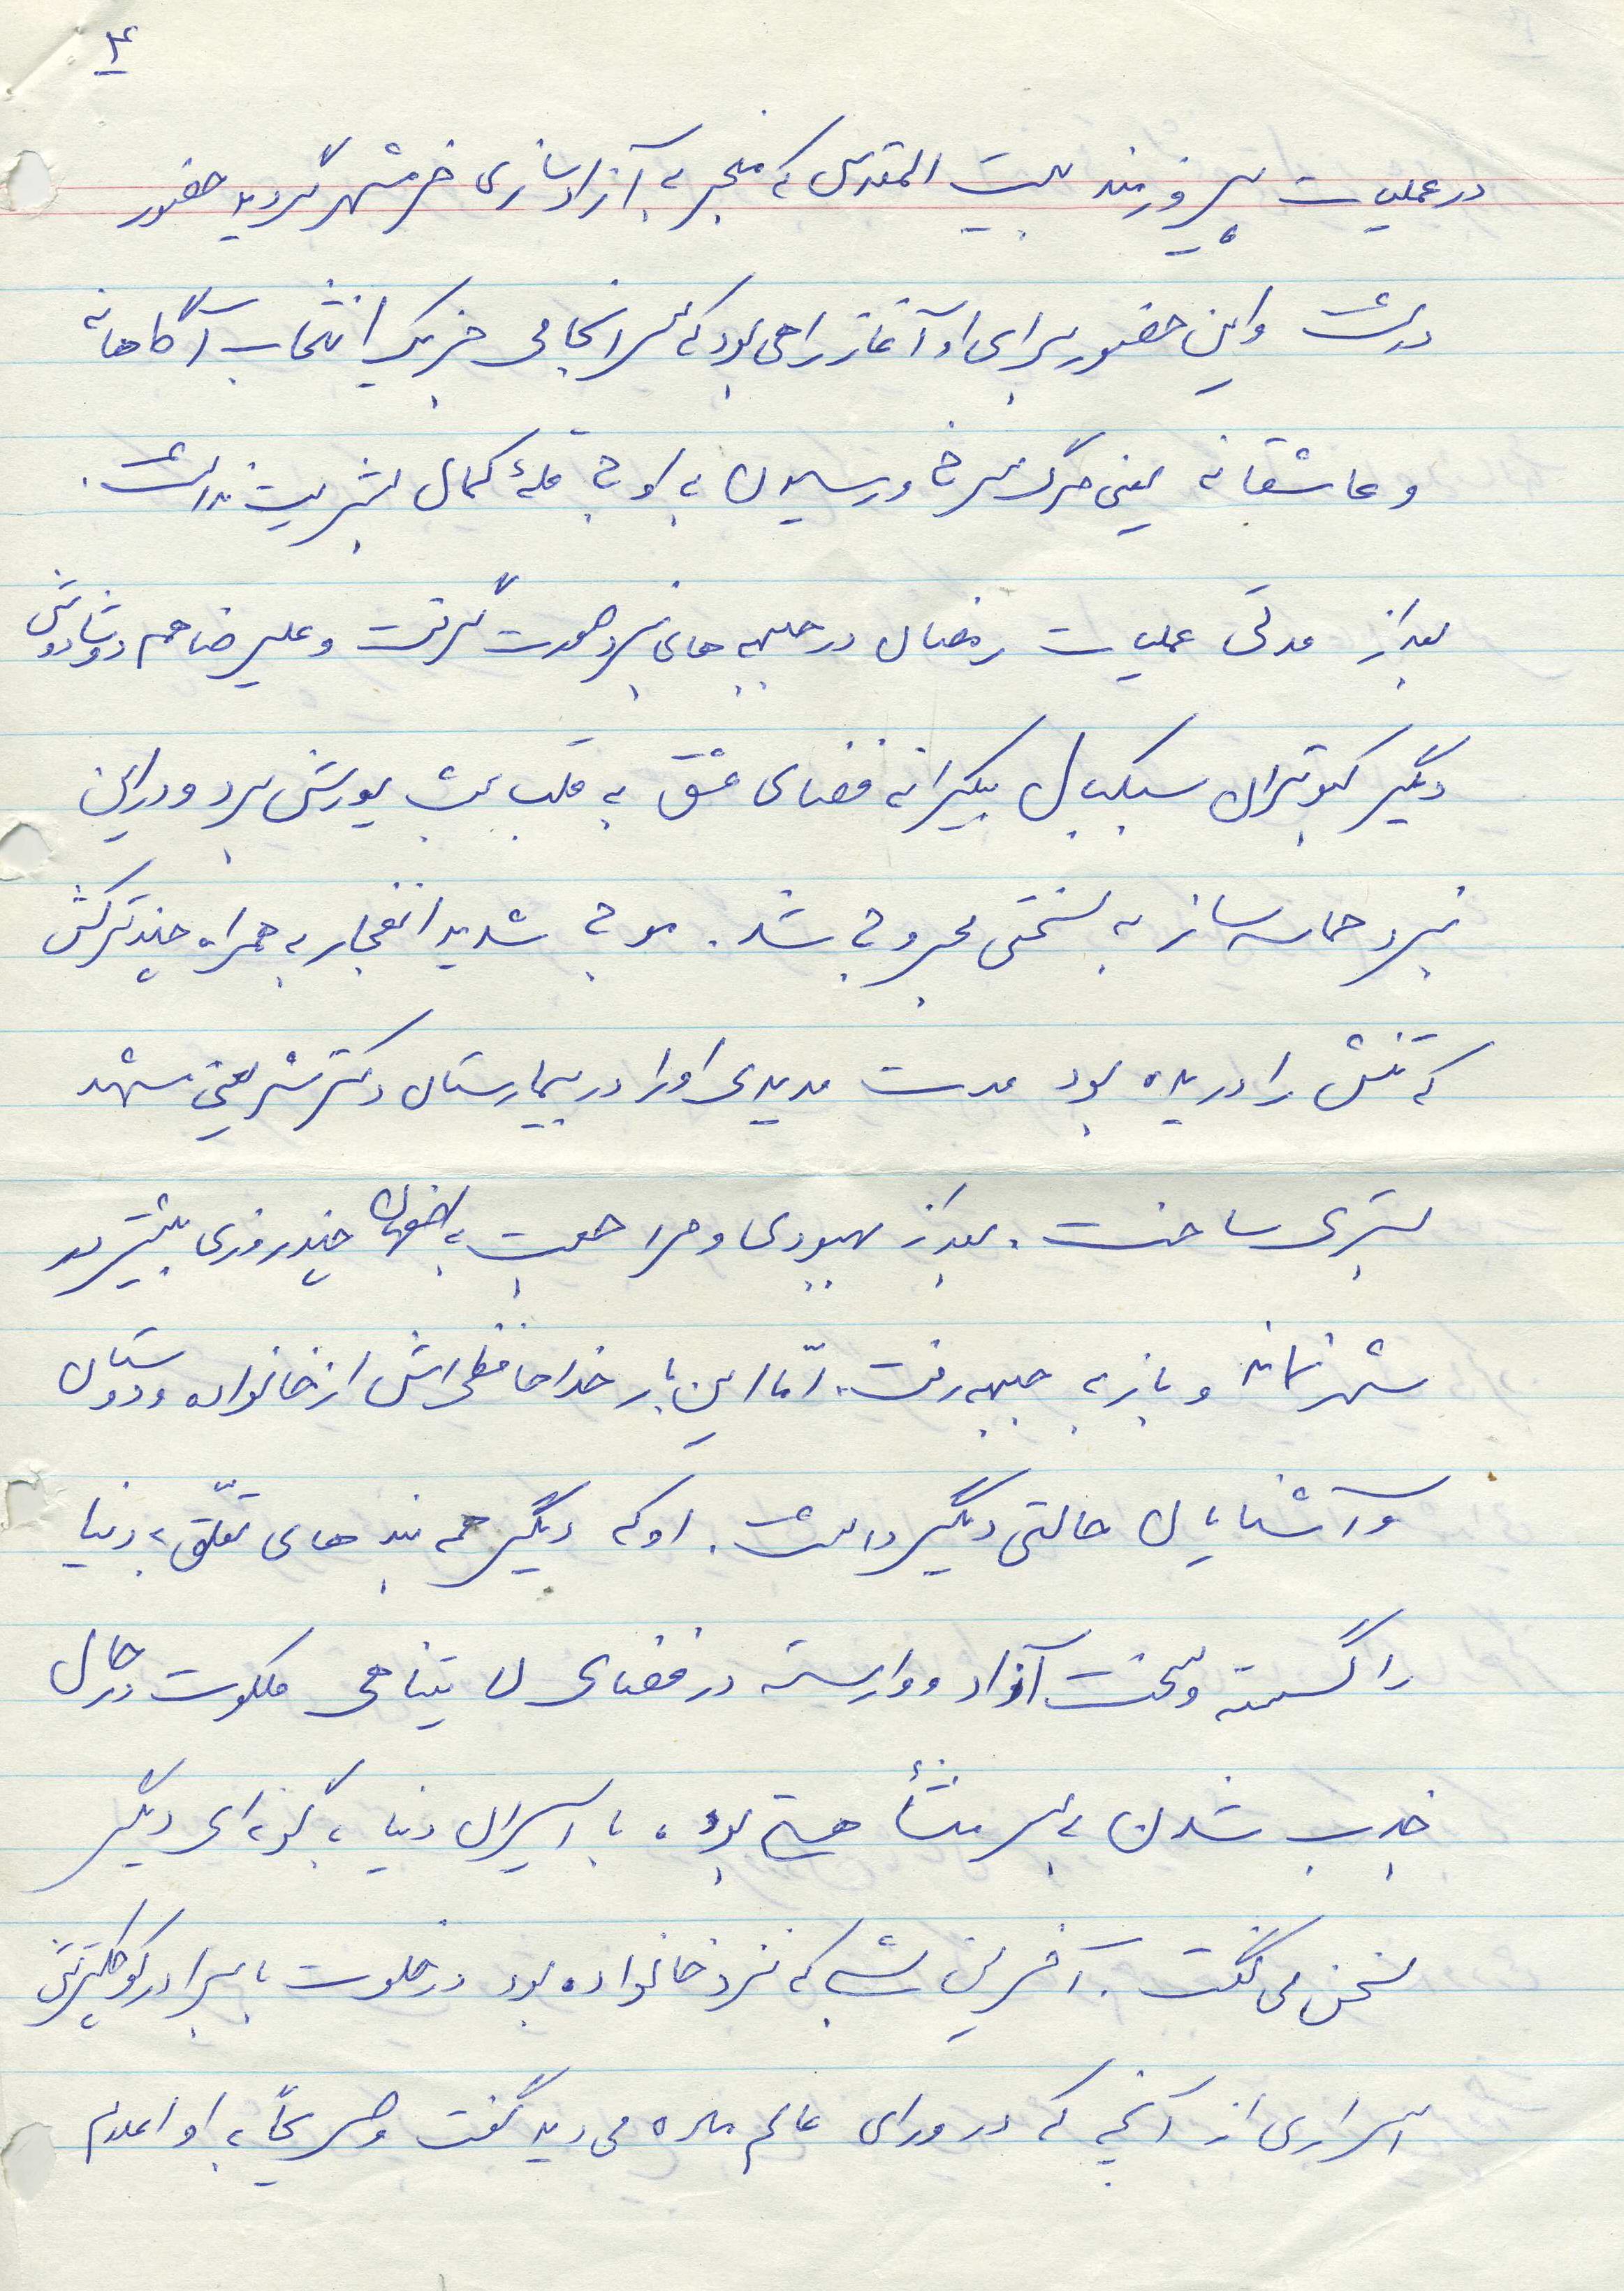 ۴
در عملیات پیروزمند بیت المقدس که منجر به آزادسازی خرمشهر گردید حضور
داشت و این حضور برای او آغاز راهی بود که سرانجامی جز یک انتخاب آگاهانه
و عاشقانه یعنی مرگ سرخ و رسیدن به اوج قلهٔ کمال بشریت نداشت.
بعد از مدتی عملیات رمضان در جبهه های نبرد صورت گرفت و علیرضا هم دوشادوش
دیگر کبوتران سبکبال بیکرانه فضای عشق به قلب شب یورش برد و در این
نبرد حماسه ساز به سختی مجروح شد. موج شدید انفجار به همراه چند ترکش
که تنش را دریده بود مدت مدیدی او را در بیمارستان دکتر شریعتی مشهد
بستری ساخت. بعد از بهبودی و مراجعت به اصفهان چند روزی بیشتر در
شهر نماند و باز به جبهه رفت. امّا این بار خداحافظی اش از خانواده و دوستان
و آشنایان حالتی دیگر داشت. او که دیگر همه بند های تعلّق به دنیا
را گسسته و سخت آزاد و وارسته در فضای لایتناهی ملکوت در حال
جذب شدن به سر منشأ هستی بود، با اسیران دنیا به گونه ای دیگر
سخن می گفت. آخرین شبی که نزد خانواده بود در خلوت با برادر کوچکترش
اسراری از آنچه که در ورای عالم ماده می دید گفت و صریحاً به او اعلام